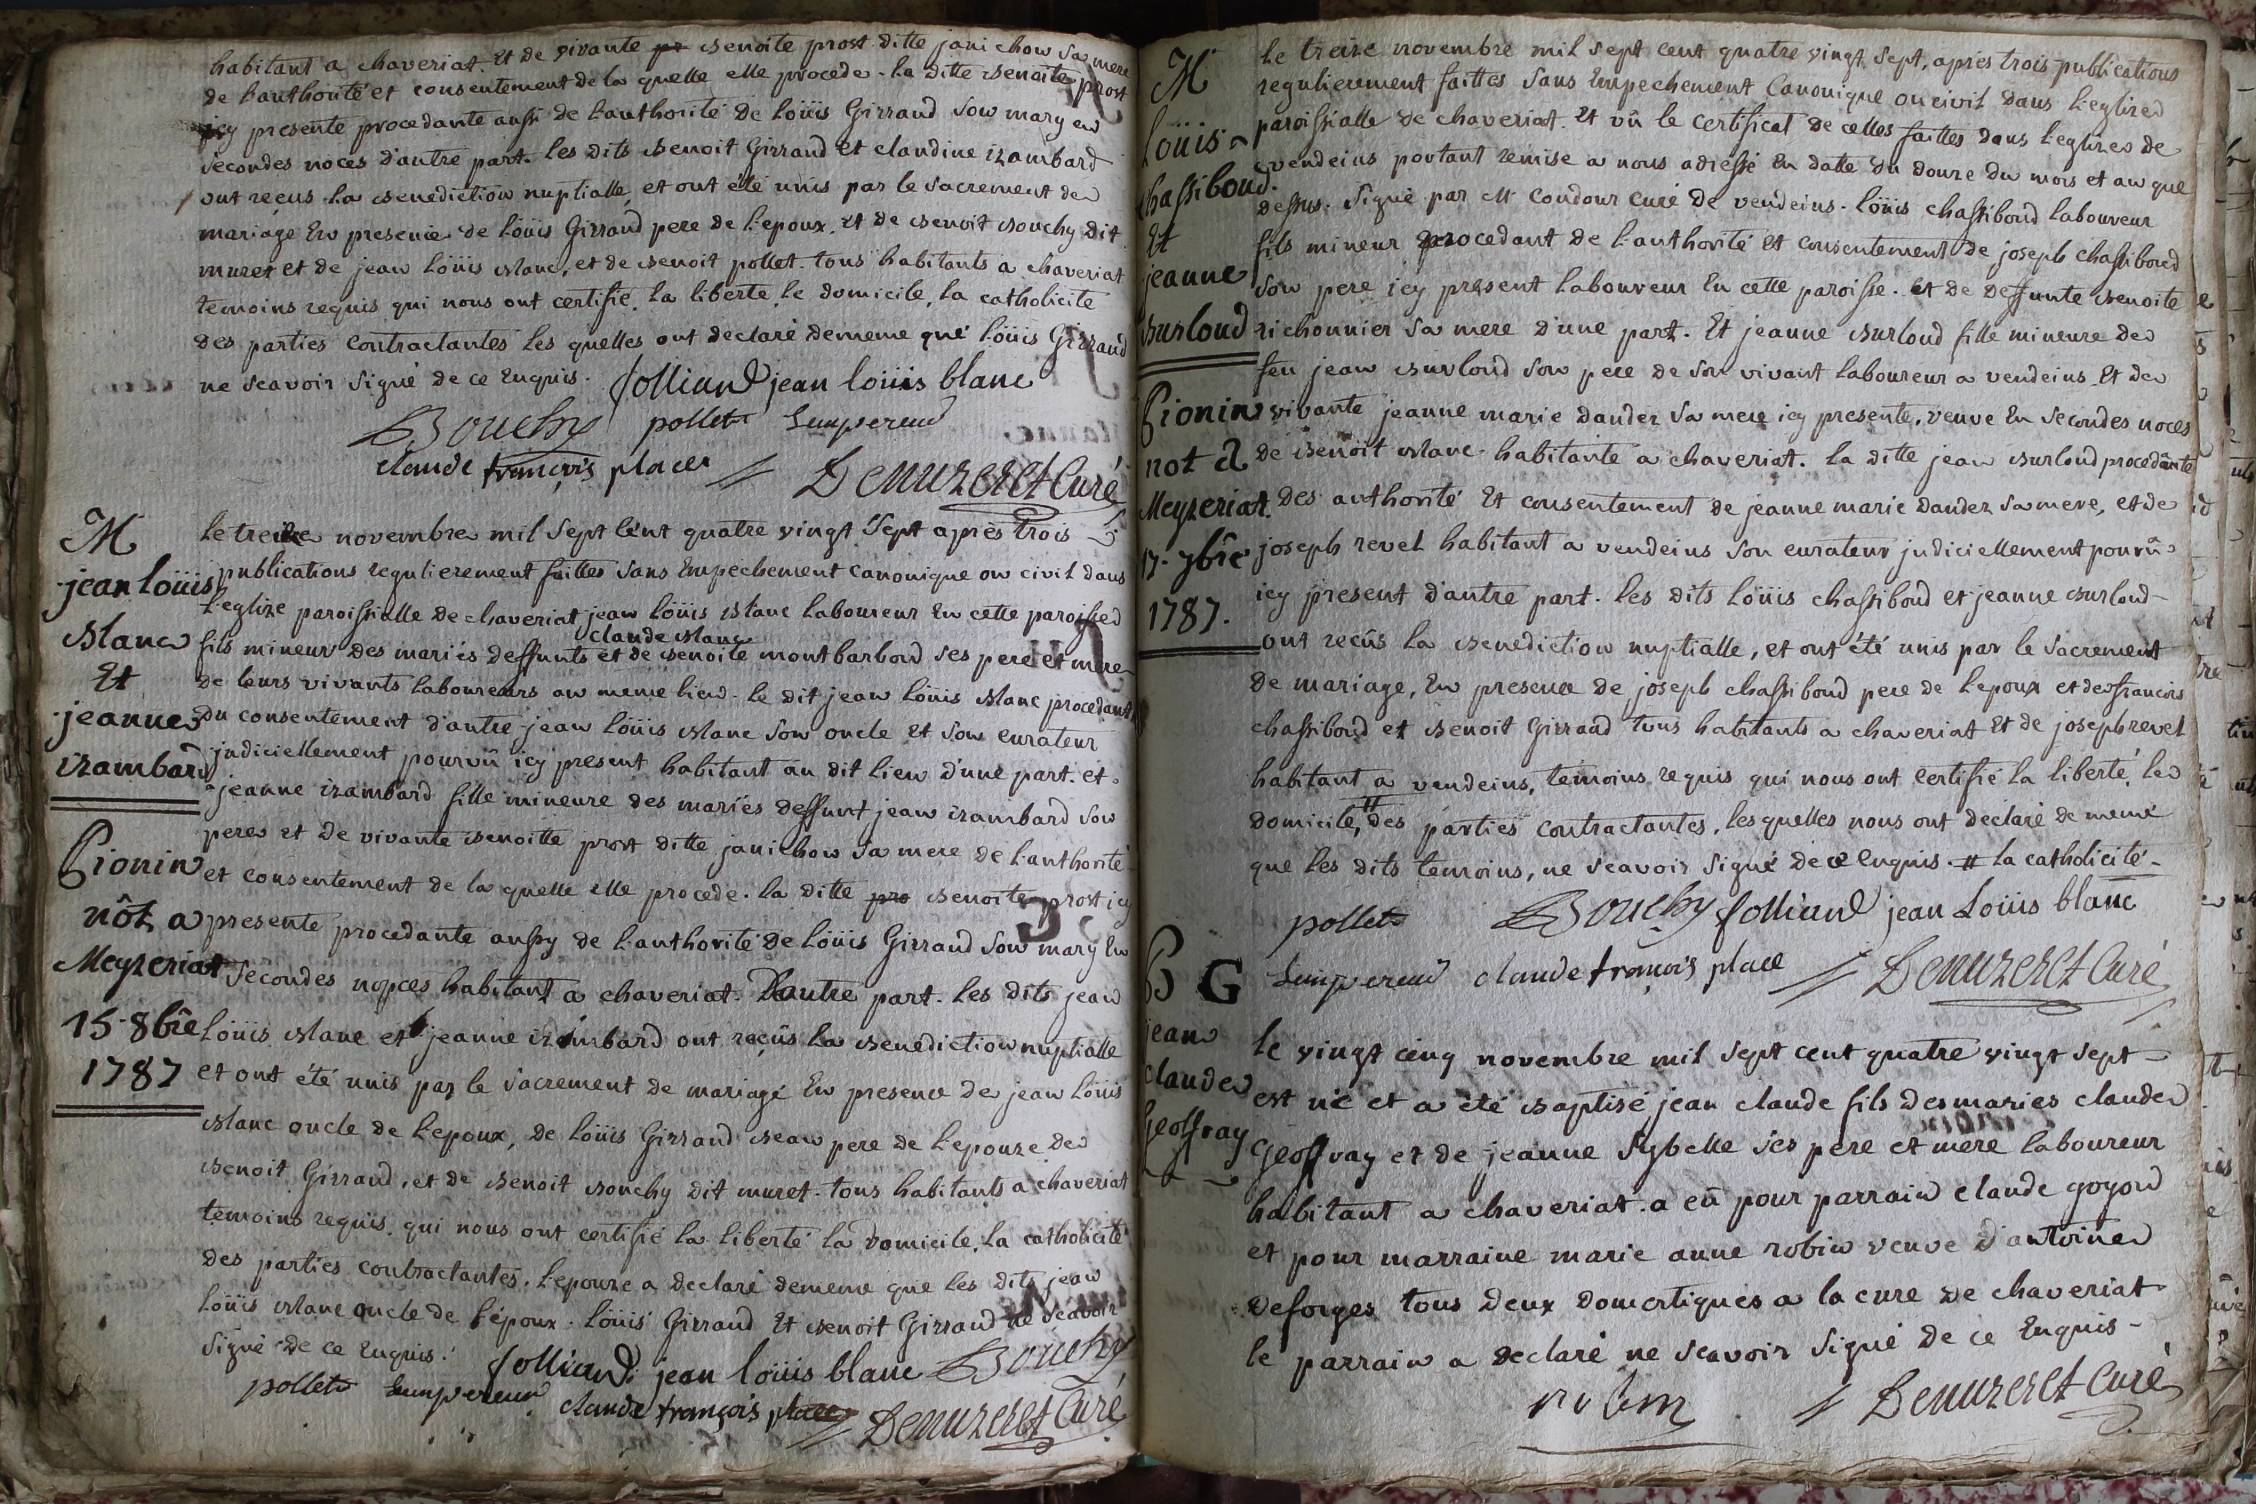 habitant a chaveriat. Et de vivante benoite prost ditte janichon sa mere
de l'authorité et consentement de la quelle elle procede. la ditte benoite prost
icy presente procedante aussi de l'authorité de loüis Girraud son mary en
secondes noces d'autre part. les dits benoit Girraud et claudine izambard
ont reçus la benediction nuptialle, et ont été unis par le sacrement de
mariage En presence de loüis Girraud pere de l'epoux. et de benoit bouchy dit
muret et de jean loüis blanc, et de benoit pollet. tous habitants a chaveriat
temoins requis qui nous ont certifié la liberté le domicile, la catholicité
des parties contractantes les quelles ont declaré de meme que loüis Girraud
ne scavoir signé de ce Enquis. folliand jean loüis blanc
Bouchy pollet Lempereur
claude françois place Denuzeret Curé
M
jean loüis
blanc
Et
jeanne
izambard
Pionin
nôt a
Meyzeriat
15 8bre
1787
le treize novembre mil sept cent quatre vingt sept après trois
publications regulierement faittes sans Empechement canonique ou civil dans
l'eglize paroissialle de chaveriat jean loüis blanc laboureur en cette paroisse
claude blanc
fils mineur des mariés deffunts et de benoite montbarbon ses pere et mere
de leurs vivants laboureurs au meme lieu. le dit jean loüis blanc procedant
du consentement d'autre jean loüis blanc son oncle et son curateur
judiciellement pourvû icy present habitant au dit lieu d'une part. et
jeanne izambard fille mineure des mariés deffunt jean izambard son
pere et de vivante benoitte prost ditte janichon sa mere de l'authorité
et consentement de la quelle elle procede. la ditte pro benoite prost icy
presente procedante aussy de l'authorité de loüis Girraud son mary En
secondes nopces habitant a chaveriat. D'autre part. les dits jean
loüis blanc et jeanne izambard ont reçûs la benediction nuptialle
et ont été unis par le sacrement de mariage En presence de jean loüis
blanc oncle de l'epoux, de loüis Girraud beau pere de l'epouze de
benoit Girraud, et de benoit bouchy dit muret. tous habitants a chaveriat
temoins requis qui nous ont certifié la liberté la domicile, la catholicité
des parties contractantes. l'epouze a declaré de meme que les dits jean
loüis blanc oncle de l'époux. loüis Girraud Et benoit Girraud ne scavoir
signé de ce Enquis. folliand jean loüis blanc Bouchy
pollet Lempereur claude françois place Denuzeret Curé
M
Loüis
chassiboud
Et
jeanne
burloud
Pionin
not a
Meyzeriat.
17. 7bre
1787.
Le treize novembre mil sept cent quatre vingt sept, après trois publications
regulierement faittes sans Empechement Canonique ou civil dans l'eglize
paroissialle de chaveriat. Et vû le certificat de celles faittes dans l'eglize de
vendeins portant remise a nous adressé En datte du douze du mois et an que
dessus. signé par Mr condour curé de vendeins. loüis chassiboud laboureur
fils mineur procedant de l'authorité et consentement de joseph chassiboud
son pere icy present laboureur En cette paroisse. et de deffunte benoite
richonnier sa mere d'une part. Et jeanne burloud fille mineure de
feu jean burloud son pere de son vivant laboureur a vendeins et de
vivante jeanne marie dandez sa mere icy presente, veuve En secondes noces
de benoit blanc habitante a chaveriat. la ditte jean burloud procedante
des authorité Et consentement de jeanne marie dandez sa mere, et de
joseph revel habitant a vendeins son curateur judiciellement pourvû
icy present d'autre part. les dits loüis chassiboud et jeanne burloud
ont reçûs la benediction nuptialle, et ont été unis par le sacrement
de mariage, En presence de joseph chassiboud pere de l'epoux et de francois
chassiboud et benoit Girraud tous habitants a chaveriat Et de joseph revel
habitant a vendeins, temoins requis qui nous ont certifié la liberté, le
domicile, # des parties contractantes, lesquelles nous ont declaré de meme
que les dits temoins, ne scavoir signé de ce Enquis. # la catholicité
pollet Bouchy folliand jean Loüis blanc
Lempereur claude françois place Denuzeret Curé
B G
jean
claude
Geoffray
Le vingt cinq novembre mil sept cent quatre vingt sept
est né et a été baptisé jean claude fils des maries claude
Geoffray et de jeanne sybelle ses pere et mere laboureur
habitant a chaveriat. a eû pour parrain claude goyon
et pour marraine marie anne robin veuve d'antoine
deforges tous deux domestiques a la cure de chaveriat
le parrain a declaré ne scavoir signé de ce Enquis
robin Denuzeret Curé